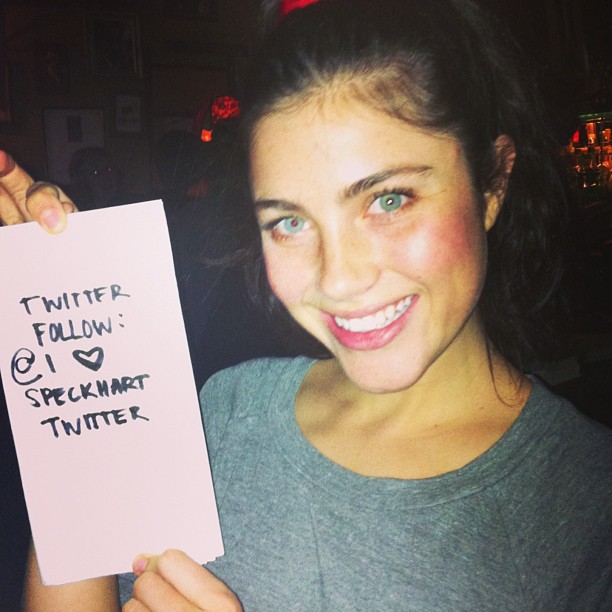 TWITTER
FOLLOW:
@ I ♥
SPECKHART
TWITTER